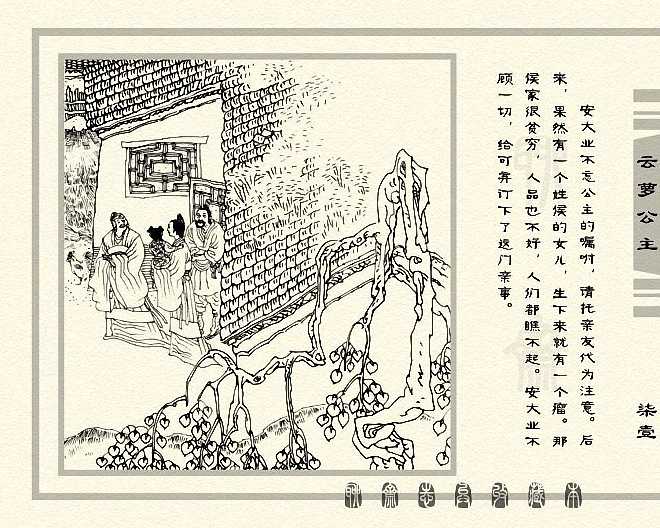 安大业不忘公主的嘱咐，请托亲友代为注意。后
来，果然有一个姓侯的女儿，生下来就有一个瘤。那
侯家很贫穷，人品也不好，人们都瞧不起。安大业不
顾一切，给可弃订下了这门亲事。
云萝公主
柒壹
聊斋志异收藏本